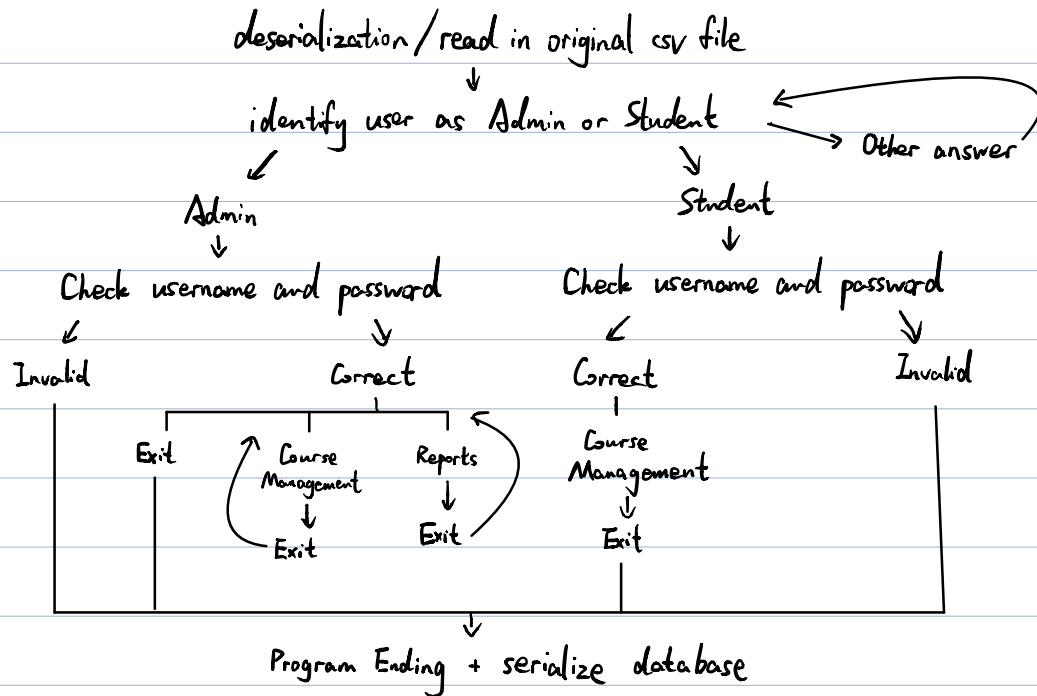 deserialization/read in original csv file
identify user as Admin or Student
Other answer
Admin
Student
Check username and password
Check username and password
Invalid
Correct
Correct
Invalid
Exit
Course
Management
Reports
Course
Management
Exit
Exit
Exit
Program Ending + serialize database